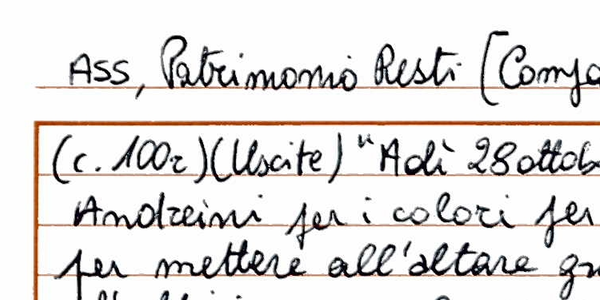 ASS, Patrimonio Resti [Compa
(c. 100r) (Uscite) "Adì 28 ottob
Andreini per i colori per
per mettere all'altare gr